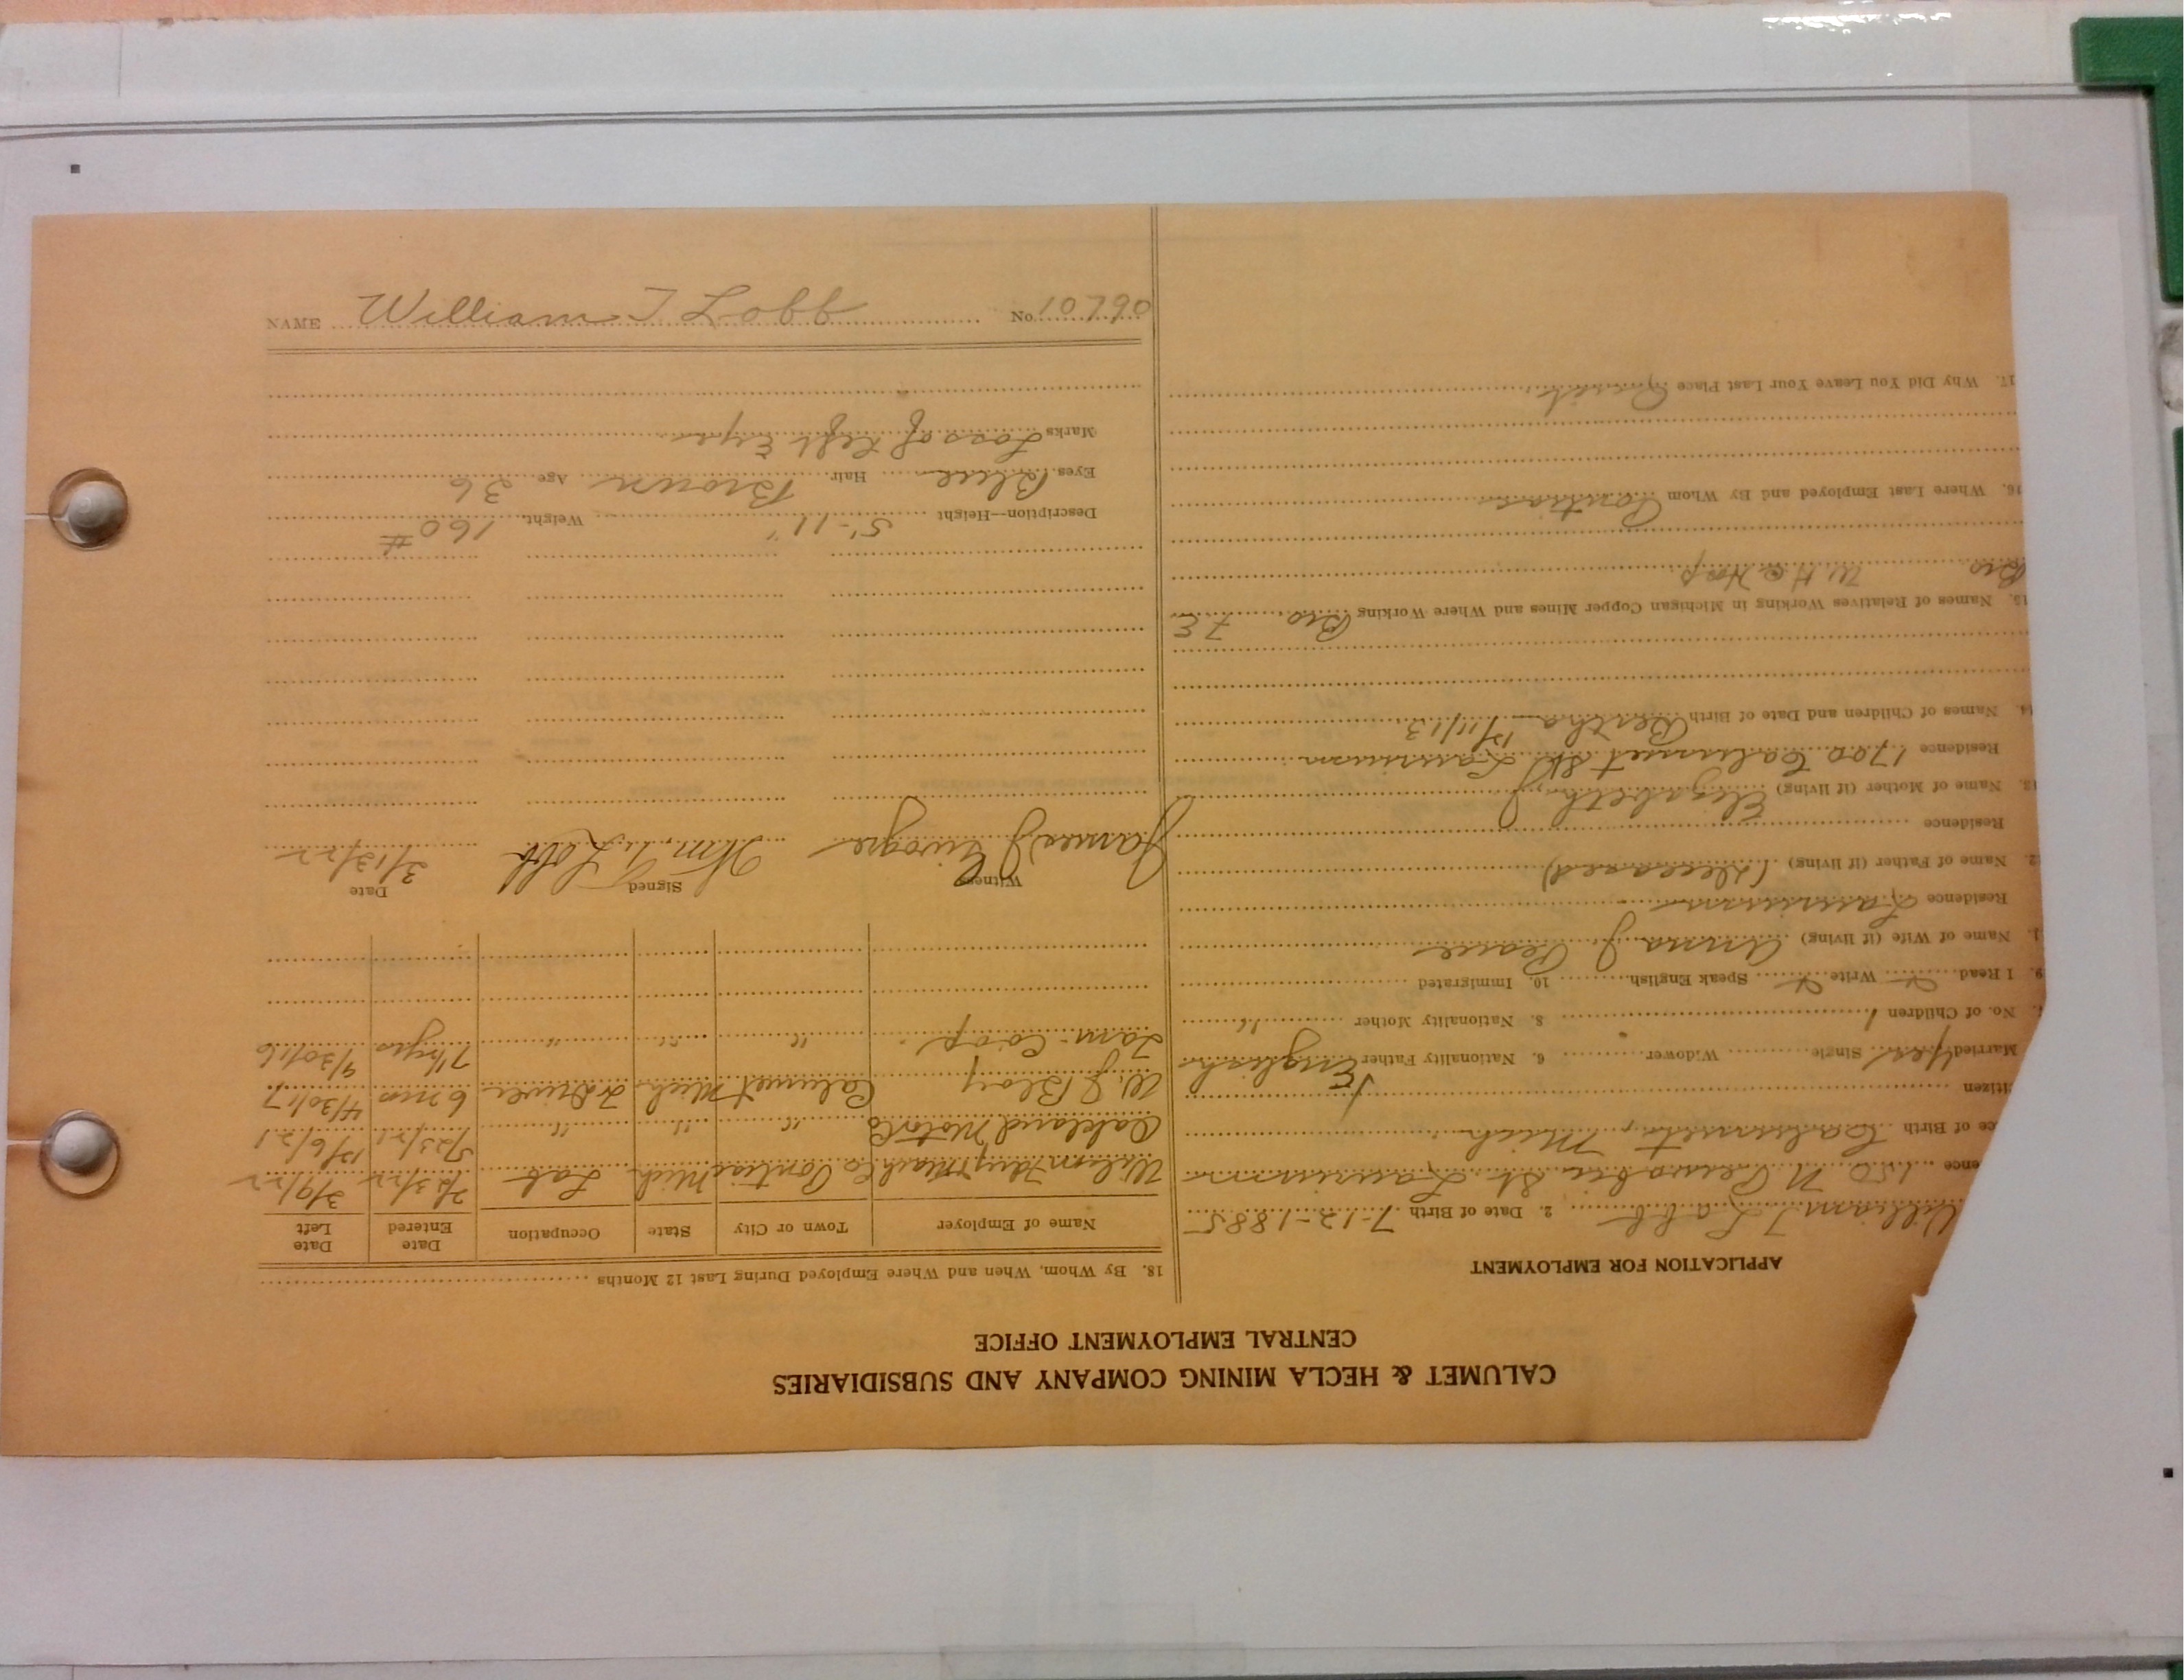 CALUMET & HECLA MINING COMPANY AND SUBSIDIARIES
CENTRAL EMPLOYMENT OFFICE
APPLICATION FOR EMPLOYMENT
William T Lobb 2. Date of Birth 7-12-1885
ence 150 N Pewabic St. Laurium
ce of Birth Calumet, Mich
itizen
Married Yes Single Widower 6. Nationality Father English
No. of Children 1 8. Nationality Mother "
9. I Read Write Speak English 10. Immigrated
Name of Wife (if living) Anna J. Pearce
Residence Laurium
2. Name of Father (if living) (Deceased)
Residence
Name of Mother (if living) Elizabeth J
Residence 1700 Calumet St Laurium
14. Names of Children and Date of Birth Bertha 12/11/13
15. Names of Relatives Working in Michigan Copper Mines and Where Working Bro. F.E
Bro W H @ Hosp
16. Where Last Employed and By Whom Pontiac
17. Why Did You Leave Your Last Place Quit
18. By Whom, When and Where Employed During Last 12 Months
Name of Employer Town or City State Occupation Date Entered Date Left
Mach Co Pontiac Mich Lab 2/23/22 3/9/22
Oakland Motor Co " " " 5/23/21 12/6/21
W. J. Bloy Calumet Mich T Driver 6 mos 4/30/17
Lam. Co-op " " " 7 1/2 yrs 9/30/16
Witness Signed Date
James J Wm. T. Lobb 3/13/22
Description—Height 5'-11" Weight 160 #
Eyes Blue Hair Brown Age 36
Marks Loss of Left Eye
NAME William T Lobb No. 10790